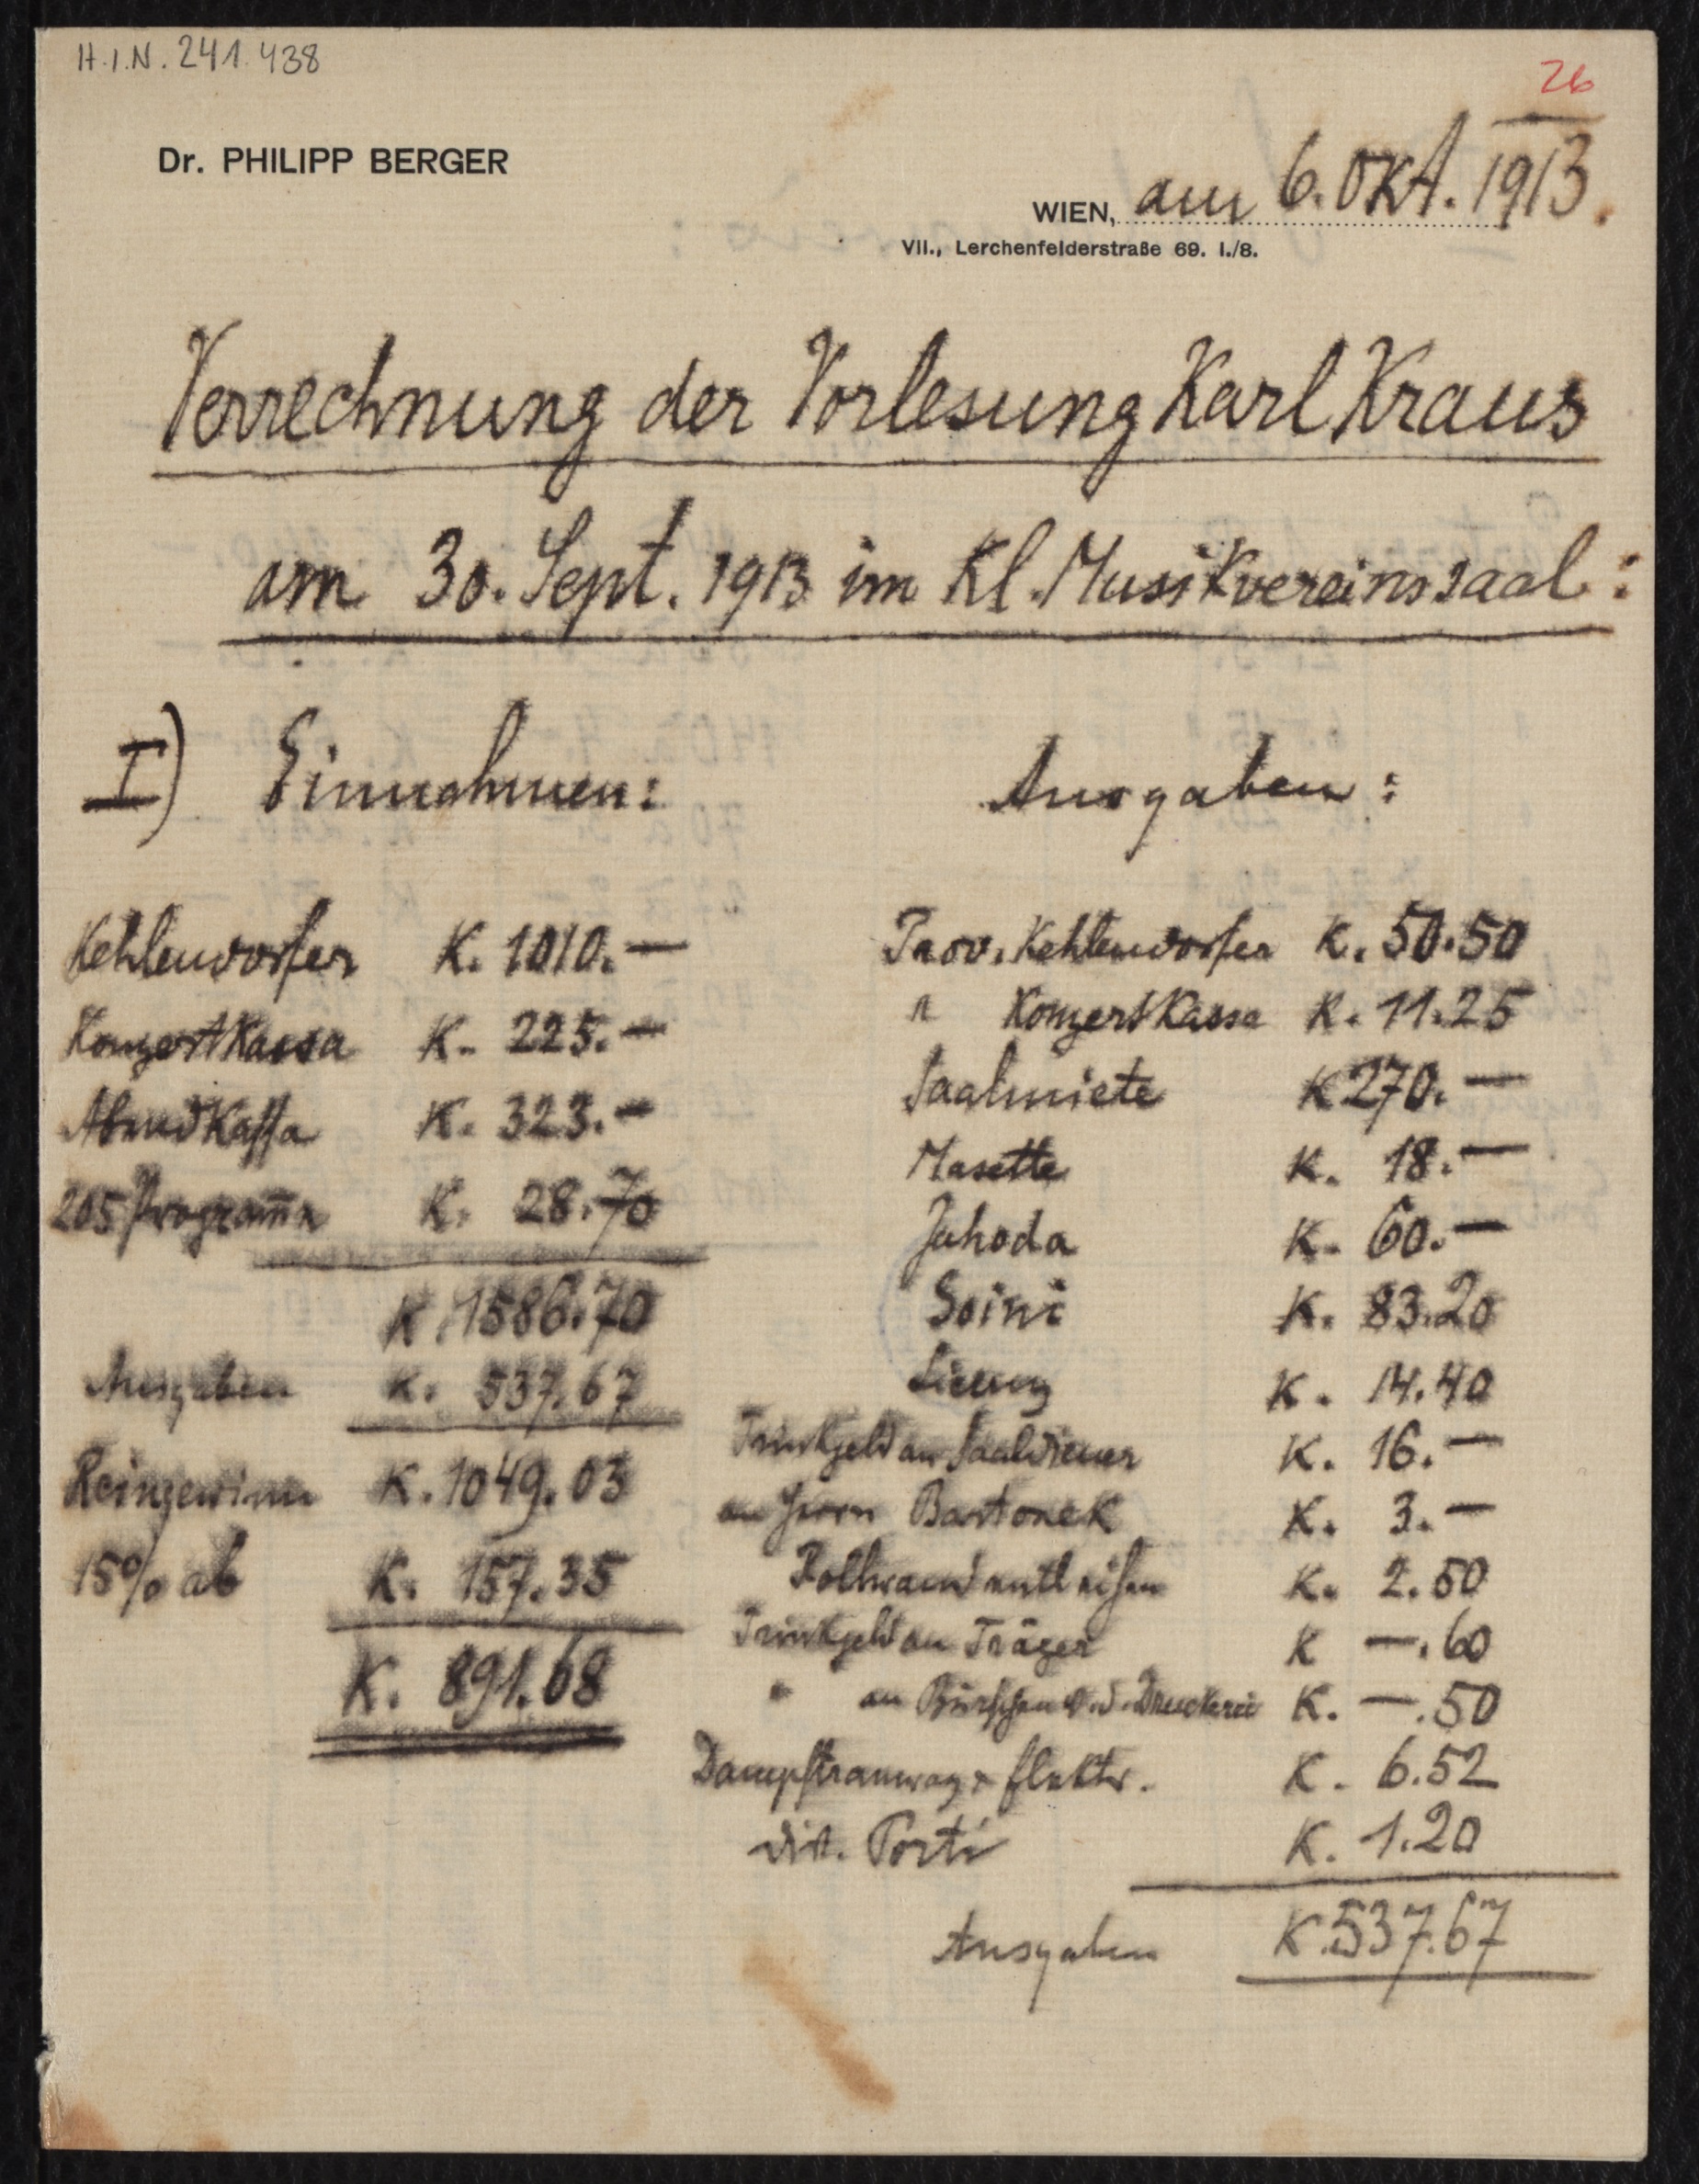 H.I.N. 241.438
26
Dr. PHILIPP BERGER
WIEN, am 6. Okt. 1913.
VII., Lerchenfelderstraße 69. I./8.
Verrechnung der Vorlesung Karl Kraus
am 30. Sept. 1913 im Kl. Musikvereinssaal:
I) Einnahmen:
Kehlendorfer K. 1010.—
Konzertkassa K. 225.—
Abendkassa K. 323.—
205 Programme K. 28.70
K. 1586.70
Ausgaben K. 537.67
Reingewinn K. 1049.03
15% ab K. 157.35
K. 891.68
Ausgaben:
Prov. Kehlendorfer K. 50.50
" Konzertkassa K. 11.25
Saalmiete K 270.—
Masette K. 18.—
Jahoda K. 60.—
Soini K. 83.20
Lizenz K. 14.40
Trinkgeld an Saaldiener K. 16.—
an Herrn Bartonek K. 3.—
K. 2.50
Trinkgeld an Träger K —.60
" an Burschen v. d. Druckerei K. —.50
Dampftramway & Elektr. K. 6.52
div. Porti K. 1.20
Ausgaben K. 537.67